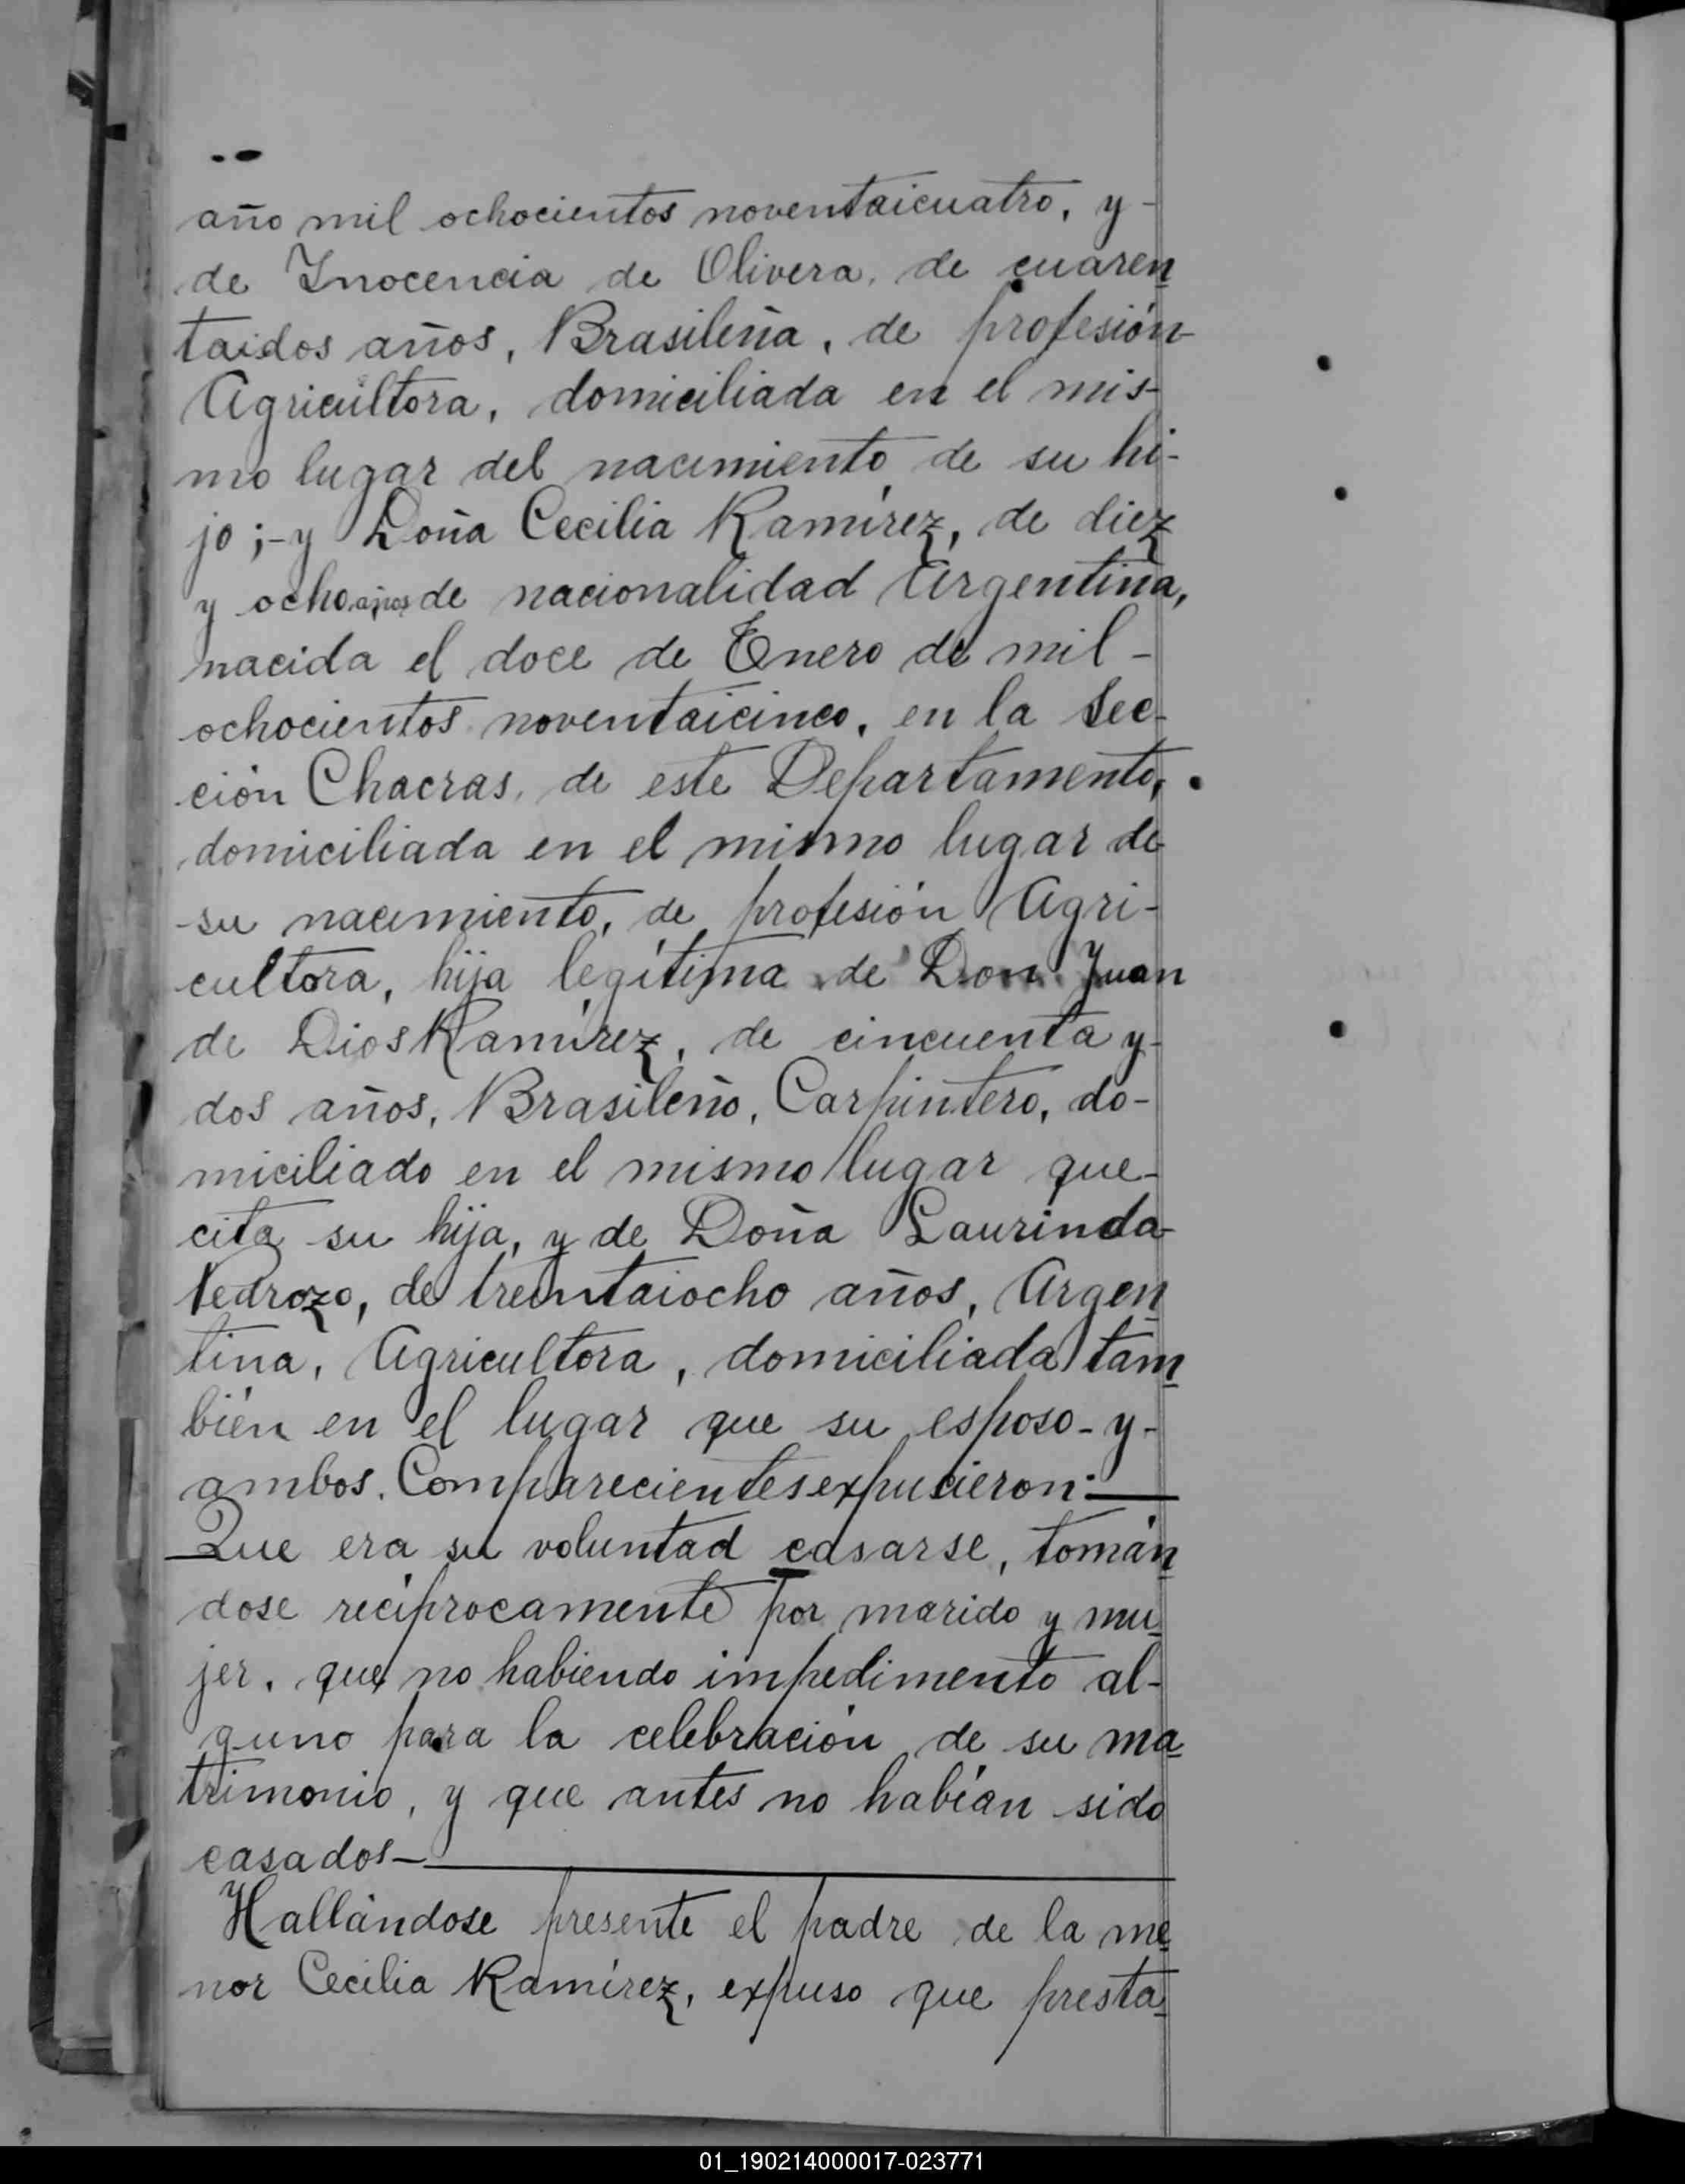 año mil ochocientos noventaicuatro, y-
de Inocencia de Olivera, de cuaren
taidos años, Brasileña, de profesión-
Agricultora, domiciliada en el mis-
mo lugar del nacimiento de su hi-
jo;-y Doña Cecilia Ramírez, de diez
y ocho años de nacionalidad Argentina,
nacida el doce de Enero de mil-
ochocientos noventaicinco, en la Sec-
ción Chacras, de este Departamento,
domiciliada en el mismo lugar de
su nacimiento, de profesión Agri-
cultora, hija legítima de Don Juan
de Dios Ramírez, de cincuenta y-
dos años, Brasileño, Carpintero, do-
miciliado en el mismo lugar que-
cita su hija, y de Doña Laurinda-
Pedrozo, de treintaiocho años, Argen
tina, Agricultora, domiciliada tam
bién en el lugar que su esposo-y-
ambos Comparecientes expusieron:—
Que era su voluntad casarse, tomán
dose recíprocamente por marido y mu
jer, que no habiendo impedimento al-
guno para la celebración de su ma
trimonio, y que antes no habían sido
casados—
Hallándose presente el padre de la me
nor Cecilia Ramírez, expuso que presta
01_190214000017-023771